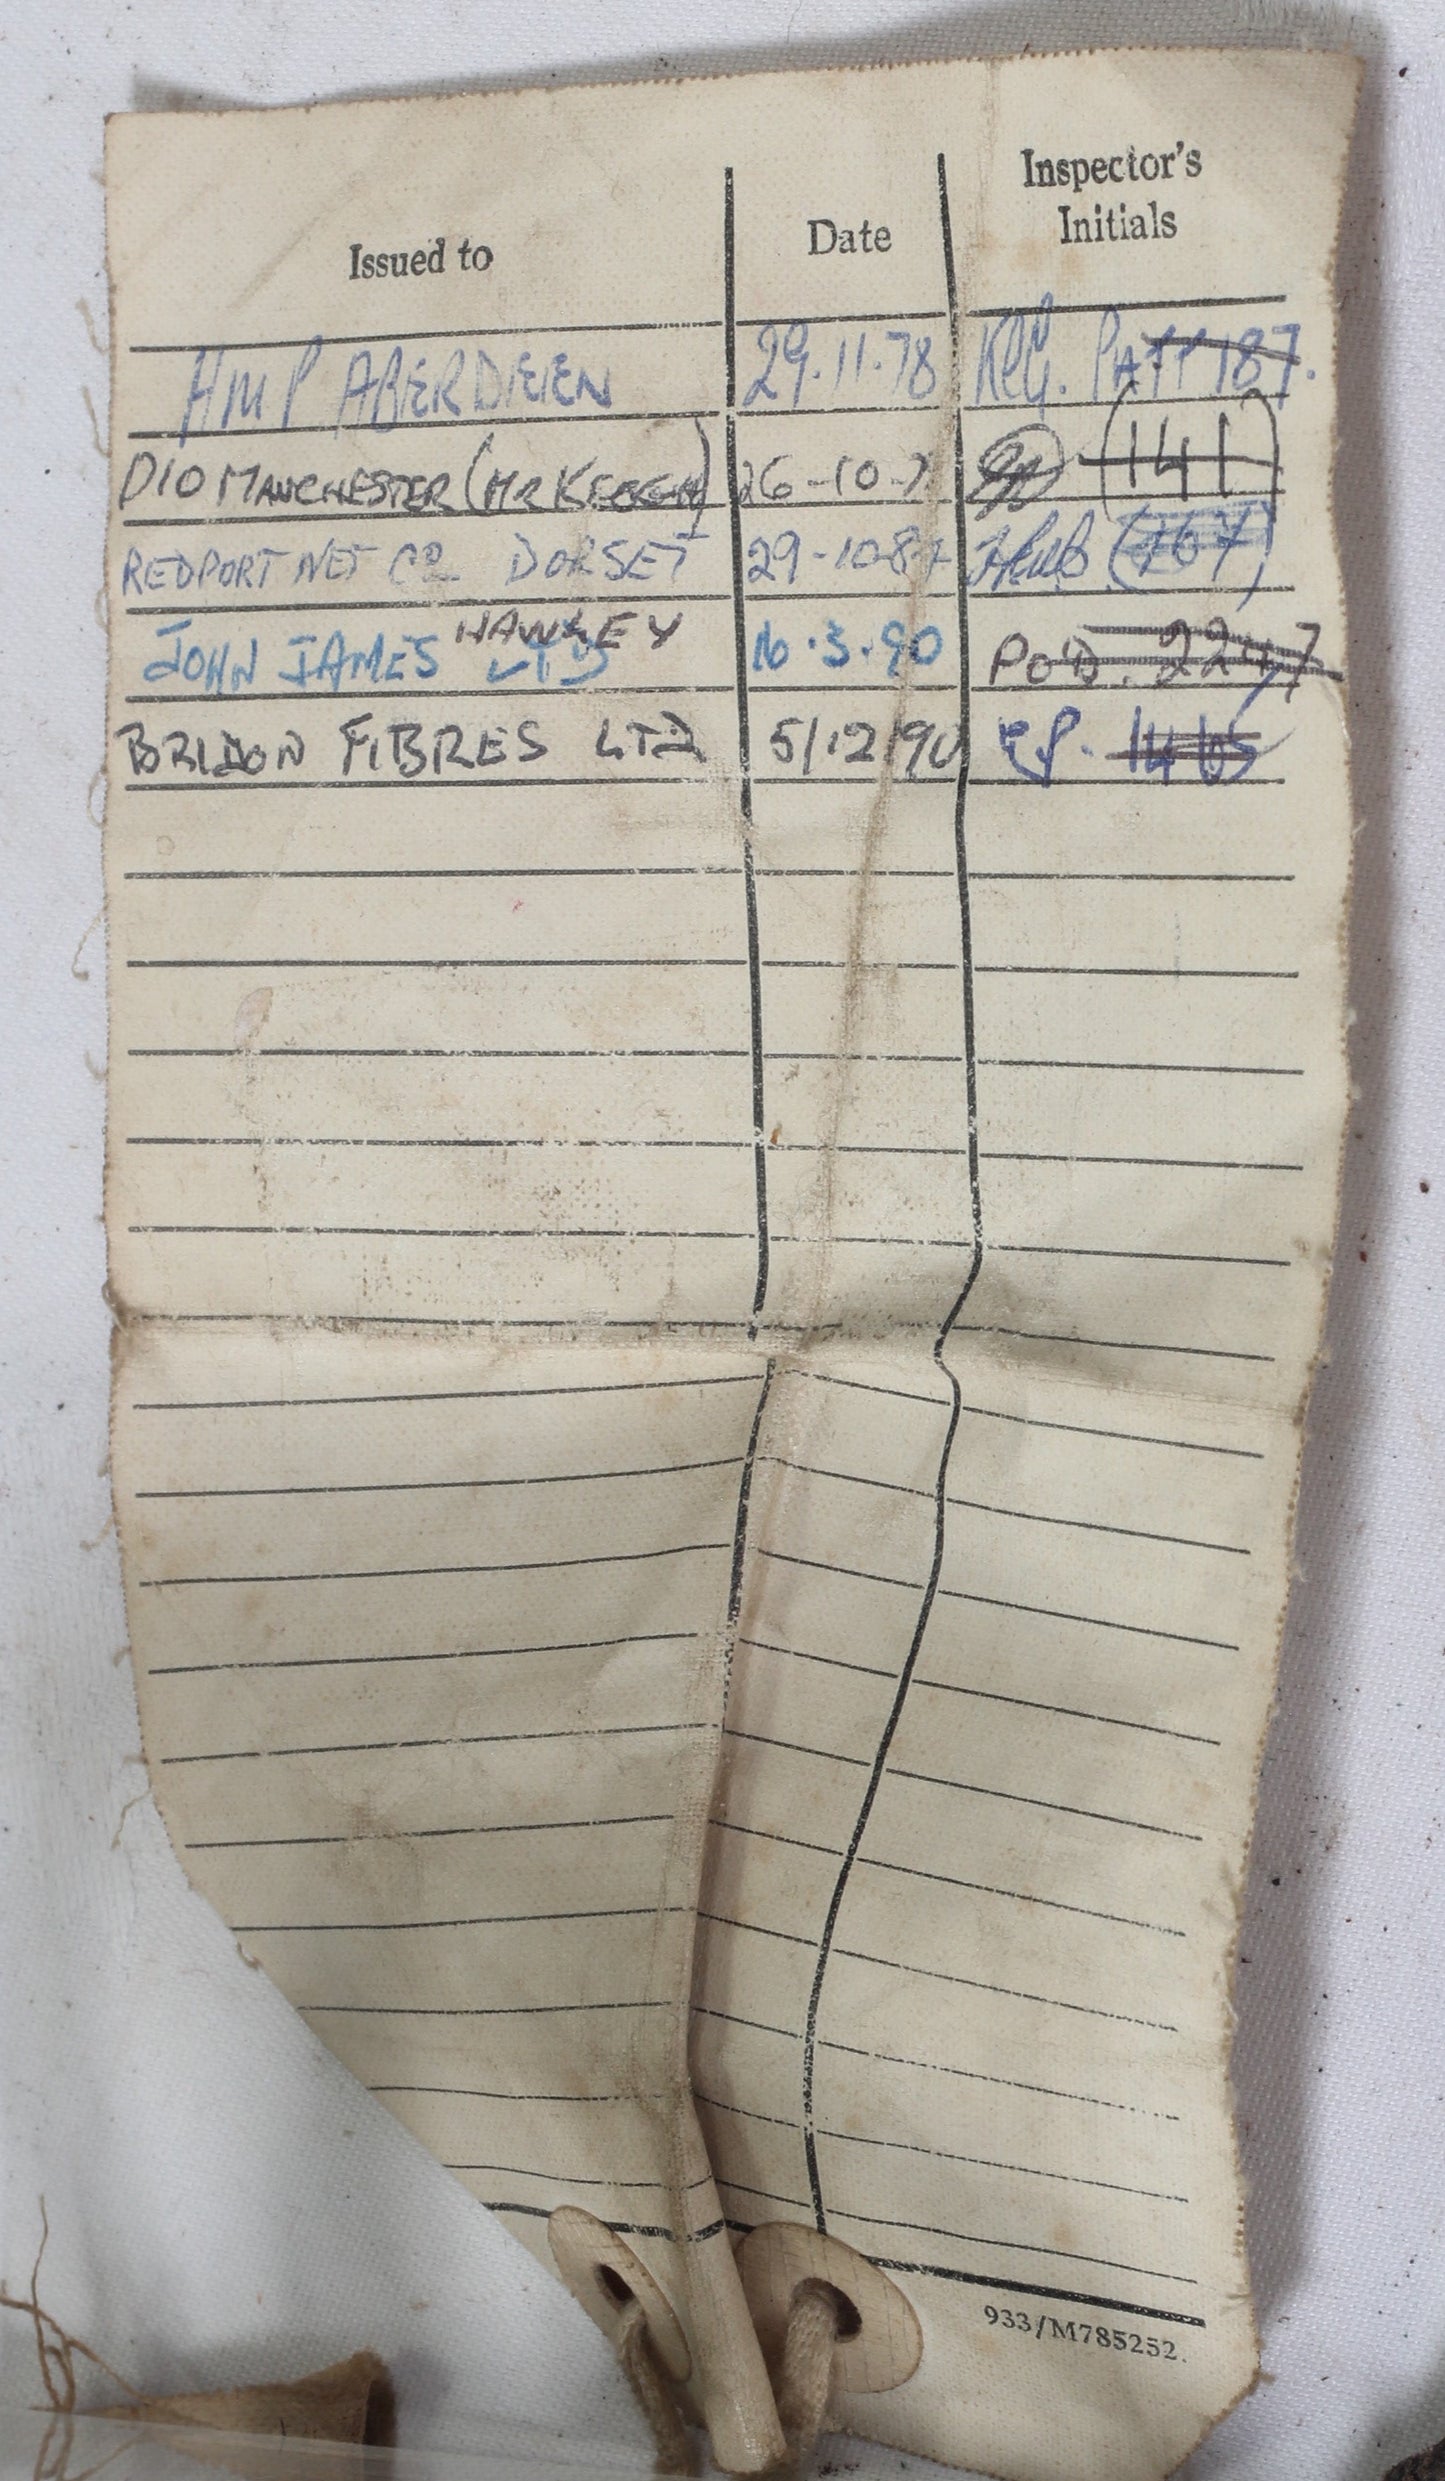 Inspector's
Issued to Date Initials
HMP ABERDEEN 29.11.78 PATT 187.
DIO MANCHESTER (MR 26-10- (141)
REDPORT NET CO DORSET 29-10-87 (167)
HAWLEY
JOHN JAMES LTD 16.3.90 POD. 2247
BRIDON FIBRES LTD 5/12/90 1465
933/M785252.